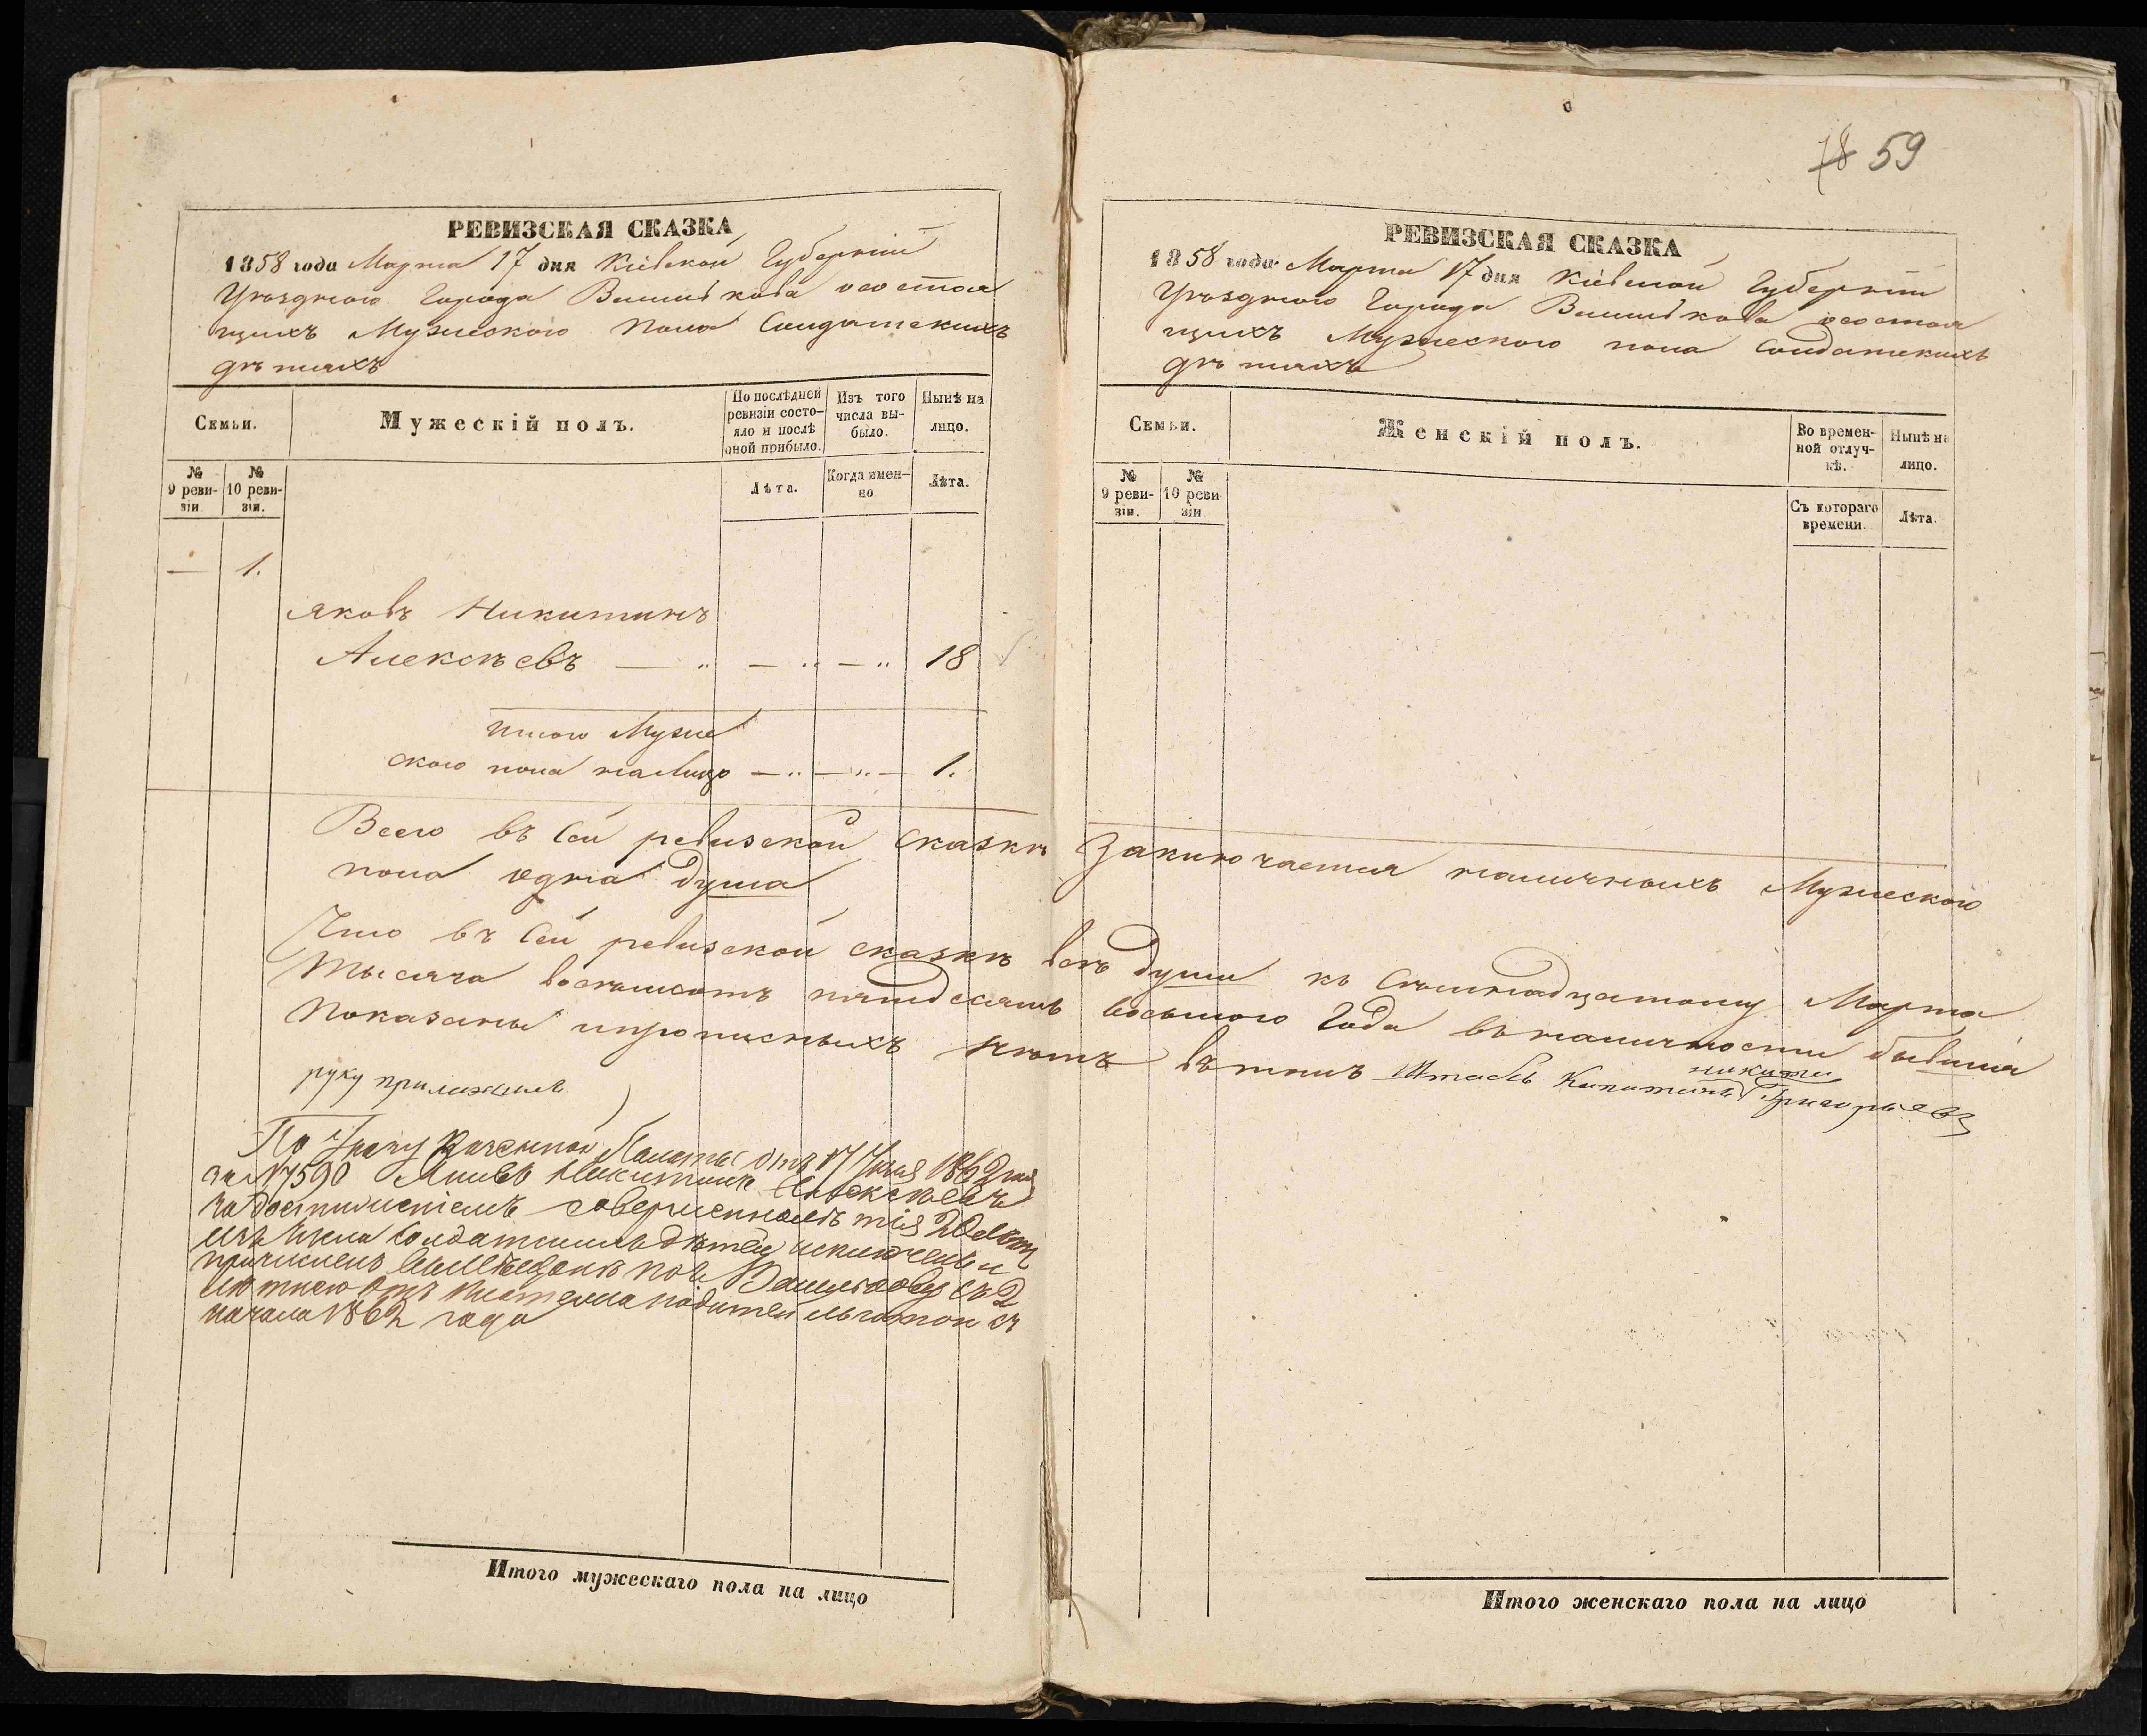 78 59
РЕВИЗСКАЯ СКАЗКА
1858 года Марта 17 дня Кіевской Губерніи
Уѣзднаго Города Василькова о состоя
щихъ Мужескаго пола Солдатскихъ
дѣтяхъ
Семьи.
Мужескій полъ.
По послѣдней ревизіи состо-яло и послѣ оной прибыло.
Изъ того числа вы-было.
Нынѣ на лицо.
№ 9 реви-зіи
№ 10 реви-зіи.
Лѣта.
Когда имен-но
Лѣта.
— 1.
Яковъ Никитинъ
Алексѣевъ — " — " — " 18
Итого Муже
скаго пола на лицо — " — " — 1.
РЕВИЗСКАЯ СКАЗКА
1858 года Марта 17 дня Кіевской Губерніи
Уѣзднаго Города Василькова о состоя
щихъ Мужескаго пола Солдатскихъ
дѣтяхъ
Семьи.
Женскій полъ.
Во времен-ной отлуч-кѣ.
Нынѣ на лицо.
№ 9 реви-зіи.
№ 10 реви-зіи
Съ котораго времени.
Лѣта.
Всего въ сей ревизской сказкѣ заключается наличныхъ Мужескаго
пола одна душа
Что въ сей ревизской сказкѣ всѣ души къ Семнадцатому Марта
Тысяча восемьсотъ пятьдесятъ восьмого Года въ наличности бывшіа
показаны и прописныхъ нѣтъ въ томъ Штабсъ Капитанъ Никита Григорьевъ
руку приложилъ
По Указу Казенной Палаты отъ 17 1862 года
за №7590 Яковъ Никитинъ Алексѣевъ
за достиженіемъ совершеннолѣтія 20 лѣтъ
изъ числа солдатскихъ дѣтей исключенъ и
причисленъ въ мѣщане по г. Василькову съ 2
лѣтнею отъ платежа податей льготою съ
начала 1862 года
Итого мужескаго пола на лицо
Итого женскаго пола на лицо